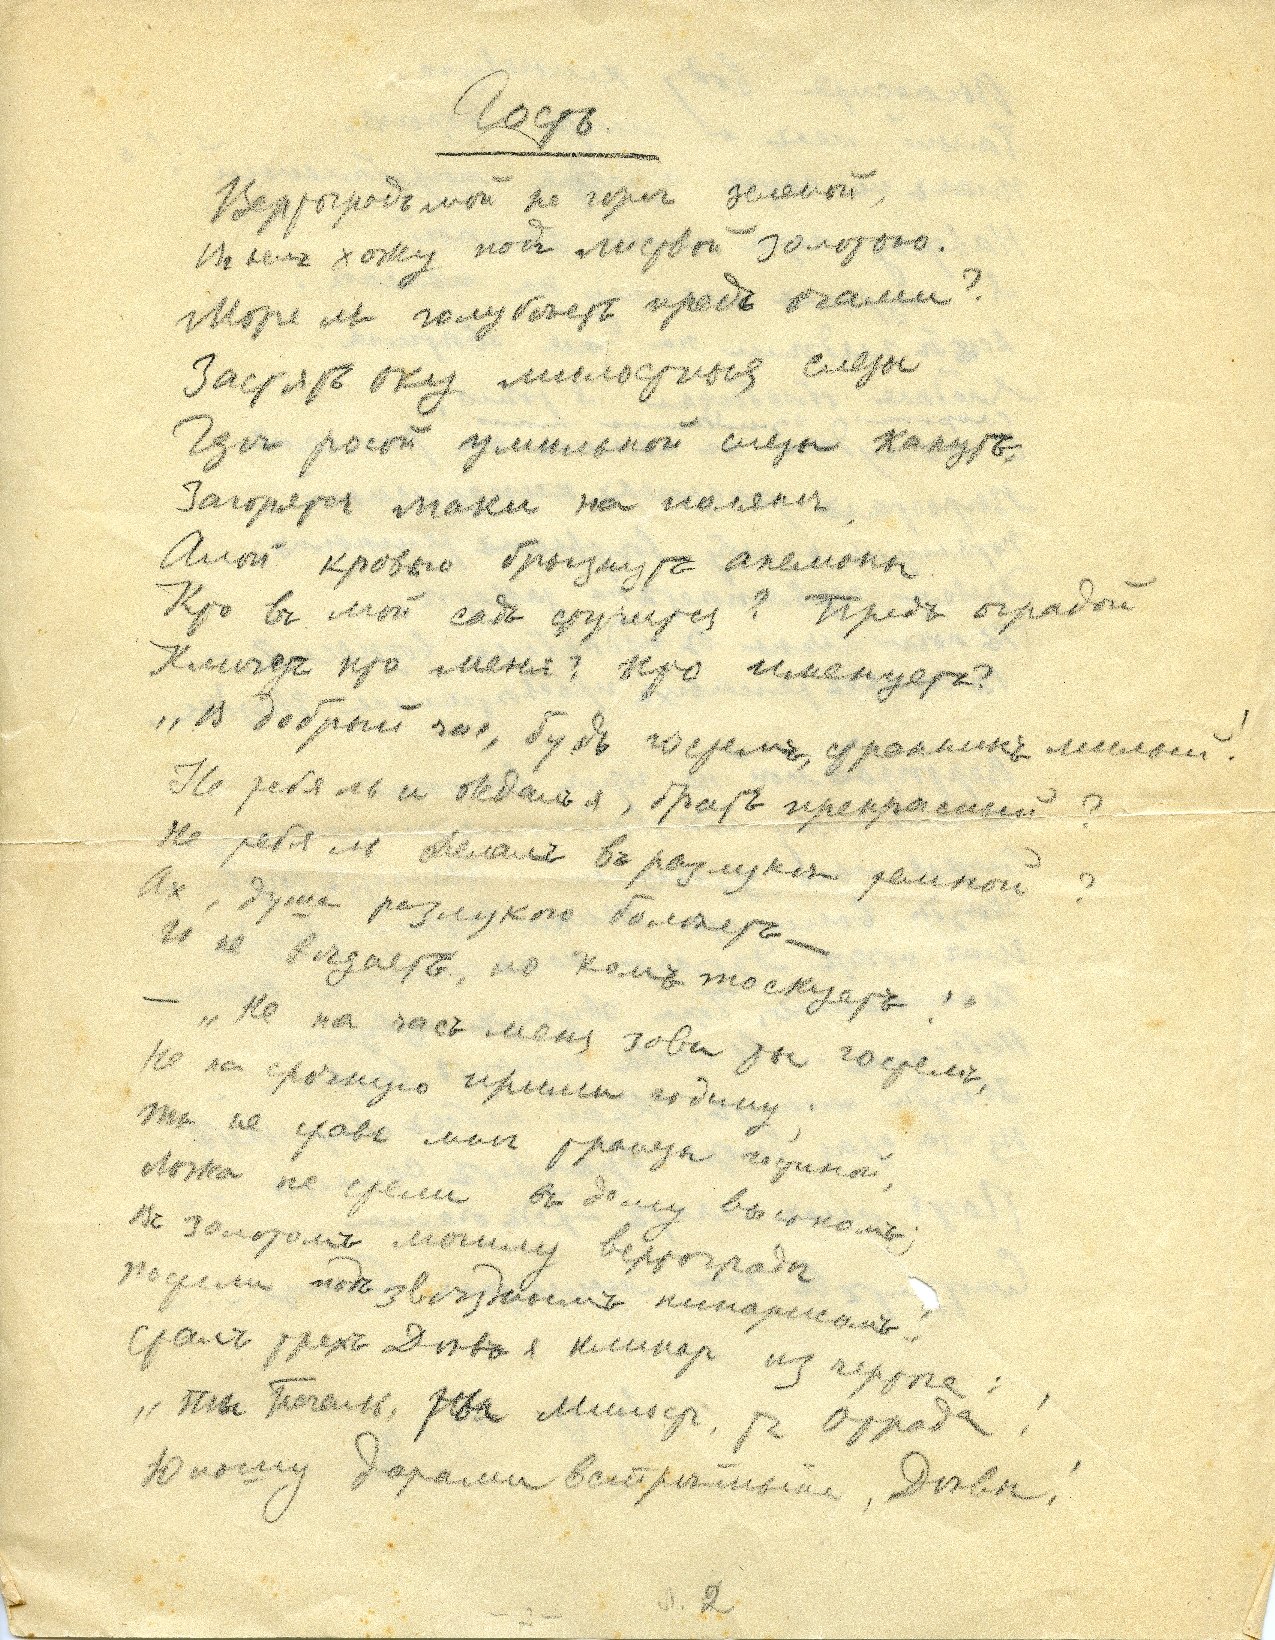 Гость.
Вертоградъ мой на горѣ зеленой,
Въ немъ хожу подъ листвой золотою.
Море ль голубѣетъ предъ очами?
Застятъ оку милостныя слезы
Гдѣ росой умильной слезы канутъ,
Загорятся маки на полянѣ,
Алой кровью брызнутъ анемоны
Кто въ мой садъ стучится? Предъ оградой
Кличетъ кто меня? Кто именуетъ?
„В добрый час, будь гостемъ, странникъ милый!
Не тебя ль и ждалъ я, братъ прекрасный?
Не тебя ль желалъ въ разлукѣ темной?
Ах, душа разлукою болѣетъ —
И не вѣдаетъ, по комъ тоскуетъ!"
— „Не на часъ меня зови ты гостемъ,
Не на срочную прими годину;
Ты не ставь мнѣ трапезы гостиной,
Ложа не стели въ дому высокомъ;
Въ золотомъ могилу вертоградѣ
Постели подъ звѣзднымъ кипарисомъ!"
Сталъ трехъ Дѣвъ я кликать из чертога:
„Ты Печаль, ты Милость, ты Отрада!
Юношу дарами встрѣтьте, Дѣвы!
2